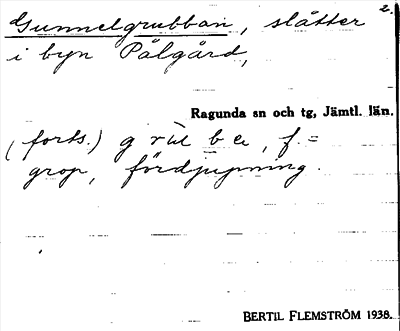 2.
Gunnelgrubban, slåtter
i byn Pålgård,
Ragunda sn och tg, Jämtl. län.
(forts.) , f. =
grop, fördjupning.
BERTIL FLEMSTRÖM 1938.